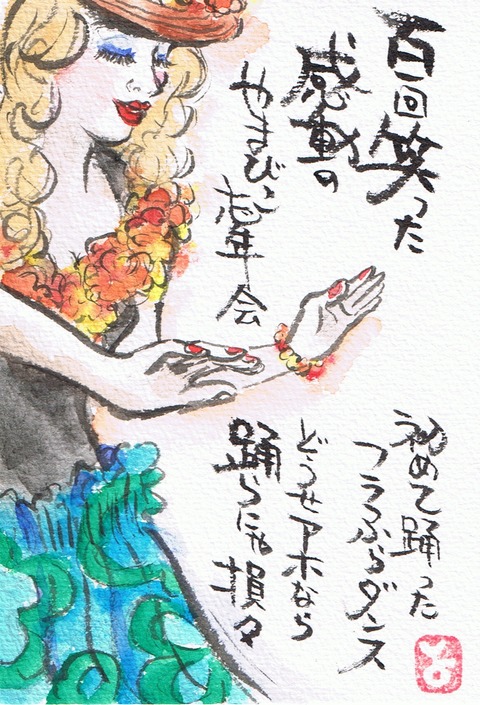 百一回笑った
感動の
やまびこ忘年会
初めて踊った
フラふらダンス
どうせアホなら
踊らにゃ損々